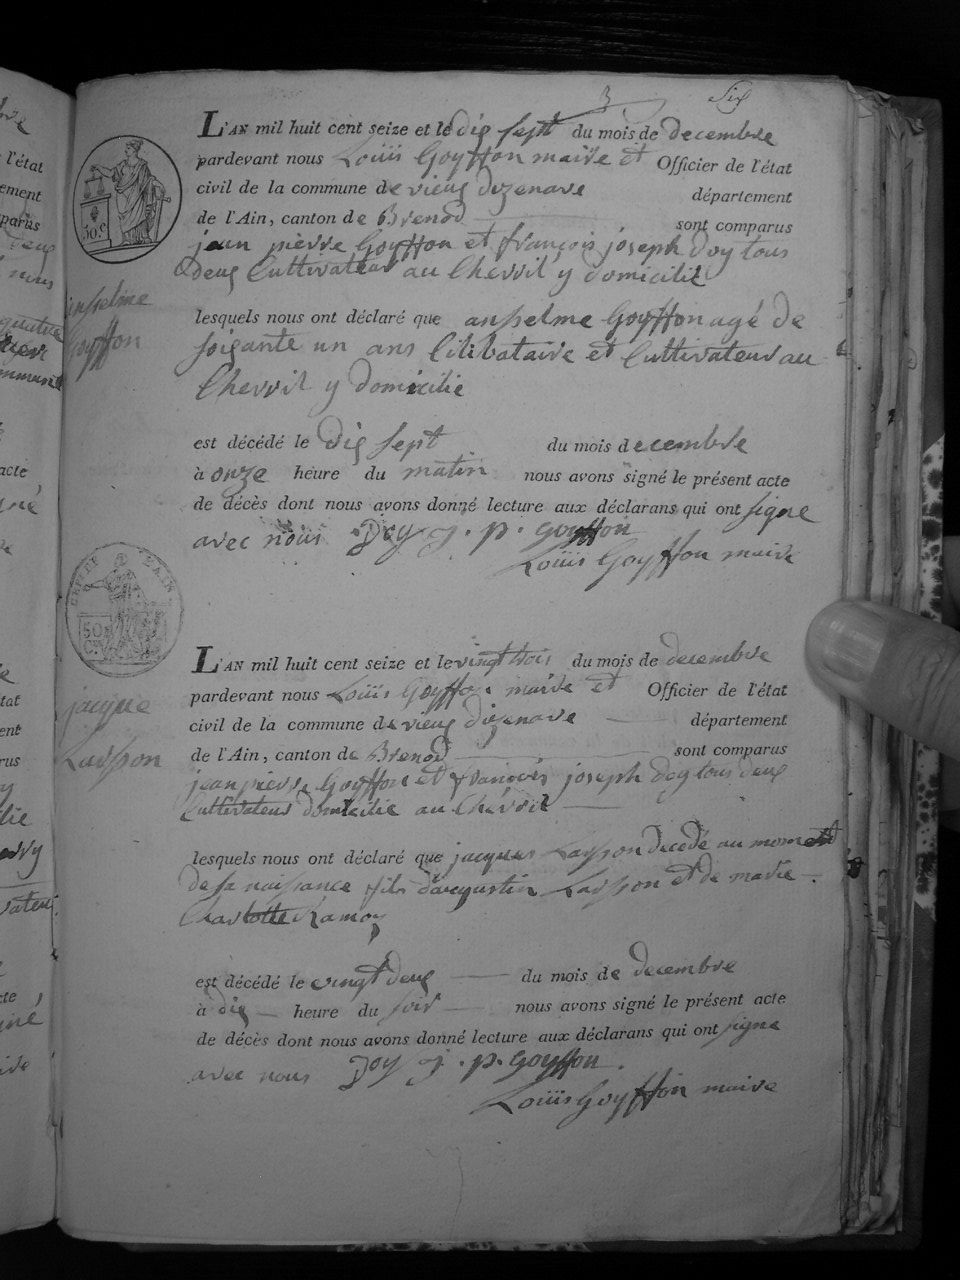 3 Six
L'AN mil huit cent seize et le dix sept du mois de decembre
pardevant nous Louis Goyffon maire et Officier de l'état
civil de la commune de vieux dizenave département
de l'Ain, canton de Brenod sont comparus
jean pierre Goyffon et françois joseph Doy tous
deux Cultivateur au Chevril y domicilié
anselme
Goyffon
lesquels nous ont déclaré que anselme Goyffon agé de
soixante un ans Célibataire et Cultivateur au
Chevril y domicilié
est décédé le dix sept du mois decembre
à onze heure du matin nous avons signé le présent acte
de décès dont nous avons donné lecture aux déclarans qui ont signe
avec nous Doy j. p. goyffon
Louis Goyffon maire
50.c
50 C.es
L'AN mil huit cent seize et le vingt trois du mois de decembre
pardevant nous Louis Goyffon maire et Officier de l'état
civil de la commune de vieux dizenave département
de l'Ain, canton de Brenod sont comparus
jacque
Lasson
jean pierre Goyffon et françois joseph doy tous deux
Cultivateur domicilié au Chevril
lesquels nous ont déclaré que jacques Lasson decedé au moment
de sa naissance fils d'augustin Lasson et de marie
Charlotte Ramoz
est décédé le vingt deux du mois de decembre
à dix heure du soir nous avons signé le présent acte
de décès dont nous avons donné lecture aux déclarans qui ont signe
avec nous Doy j. p. Goyffon.
Louis Goyffon maire